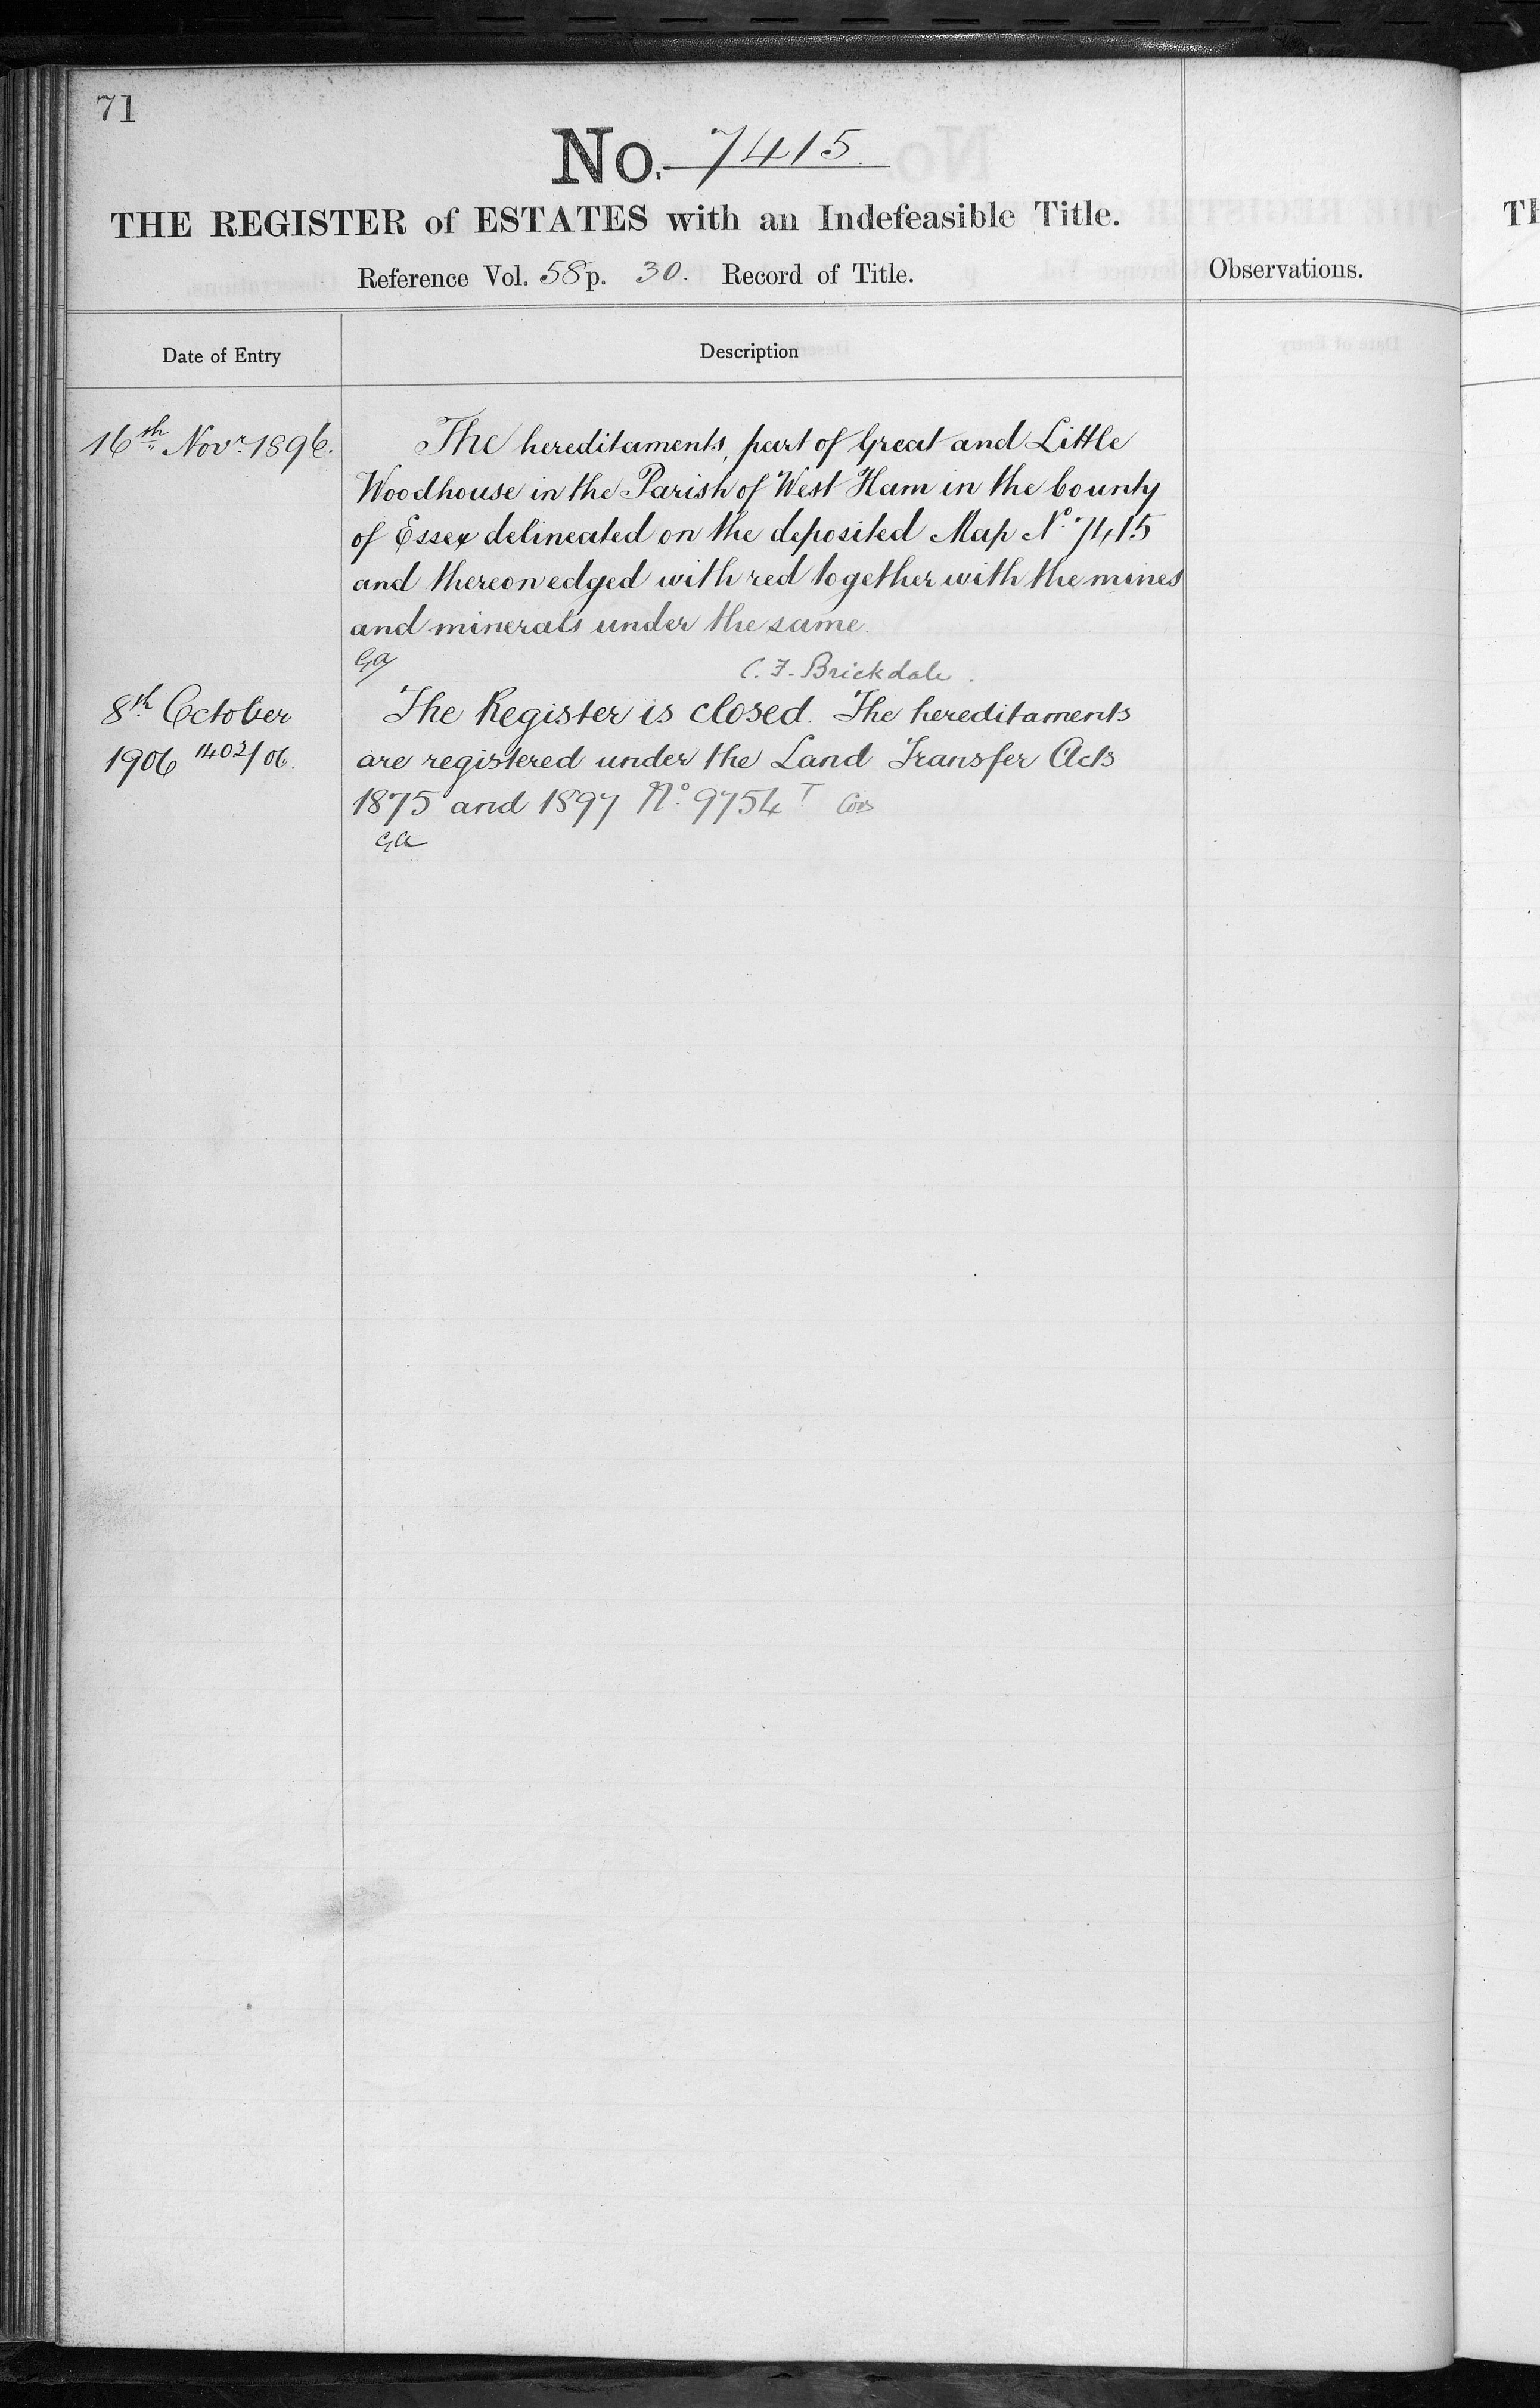 71
No. 7415.
THE REGISTER of ESTATES with an Indefeasible Title.
Reference Vol. 58 p. 30. Record of Title.
Observations.
Date of Entry
Description
16th Novr. 1896.
The hereditaments, part of Great and Little
Woodhouse in the Parish of West Ham in the County
of Essex delineated on the deposited Map No. 7415
and thereon edged with red together with the mines
and minerals under the same.
GA
C. F. Brickdale.
8th October
1906 1402/06.
The Register is closed. The hereditaments
are registered under the Land Transfer Acts
1875 and 1897 No. 9754 T
GA